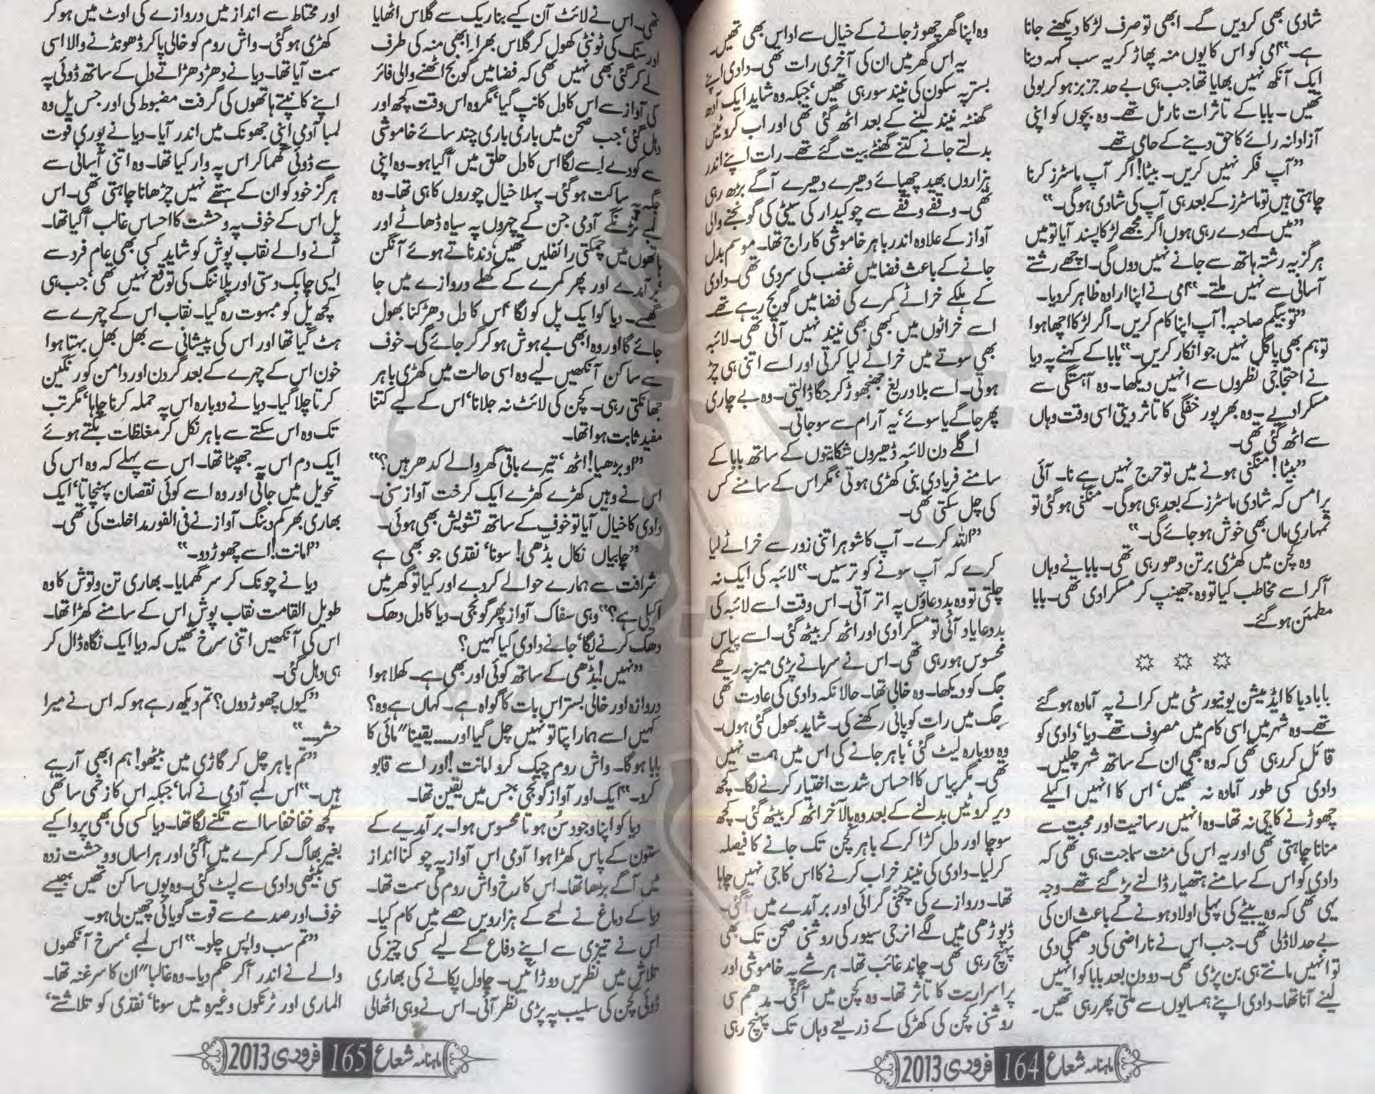 شادی بھی کردیں گے۔ ابھی تو صرف لڑکا دیکھنے جانا
ہے۔“ امی کو اس کا یوں منہ پھاڑ کر یہ سب کہہ دینا
ایک آنکھ نہیں بھایا تھا جب ہی بے حد جزبز ہو کر بولی
تھیں۔ بابا کے تاثرات نارمل تھے۔ وہ بچوں کو اپنی
آزادانہ رائے کا حق دینے کے حامی تھے۔
”آپ فکر نہیں کریں۔ بیٹا! اگر آپ ماسٹرز کرنا
چاہتی ہیں تو ماسٹرز کے بعد ہی آپ کی شادی ہوگی۔“
”میں کہے دے رہی ہوں اگر مجھے لڑکا پسند آیا تو میں
ہرگز یہ رشتہ ہاتھ سے جانے نہیں دوں گی۔ اچھے رشتے
آسانی سے نہیں ملتے۔“ امی نے اپنا ارادہ ظاہر کر دیا۔
”تو بیگم صاحبہ! آپ اپنا کام کریں۔ اگر لڑکا اچھا ہوا
تو ہم بھی پاگل نہیں جو انکار کریں۔“ بابا کے کہنے پہ دیا
نے احتجاجی نظروں سے انہیں دیکھا۔ وہ آہستگی سے
مسکرا دیے۔ وہ بھرپور خفگی کا تاثر دیتی اسی وقت وہاں
سے اٹھ گئی تھی۔
”بیٹا! منگنی ہونے میں تو حرج نہیں ہے نا۔ آئی
پرامس کہ شادی ماسٹرز کے بعد ہی ہوگی۔ منگنی ہو گئی تو
تمہاری ماں بھی خوش ہو جائے گی۔“
وہ کچن میں کھڑی برتن دھو رہی تھی۔ بابا نے وہاں
آکر اسے مخاطب کیا تو وہ جھینپ کر مسکرا دی تھی۔ بابا
مطمئن ہو گئے۔
☼ ☼ ☼
بابا دیا کا ایڈمیشن یونیورسٹی میں کرانے پہ آمادہ ہو گئے
تھے۔ وہ شہر میں اسی کام میں مصروف تھے۔ دیا‘ دادی کو
قائل کر رہی تھی کہ وہ بھی ان کے ساتھ شہر چلیں۔
دادی کسی طور آمادہ نہ تھیں‘ اس کا انہیں اکیلے
چھوڑنے کا جی نہ تھا۔ وہ انہیں رسانیت اور محبت سے
منانا چاہتی تھی اور یہ اس کی منت سماجت ہی تھی کہ
دادی کو اس کے سامنے ہتھیار ڈالنے پڑ گئے تھے۔ وجہ
یہی تھی کہ وہ بیٹے کی پہلی اولاد ہونے کے باعث ان کی
بے حد لاڈلی تھی۔ جب اس نے ناراضی کی دھمکی دی
تو انہیں مانتے ہی بن پڑی تھی۔ دو دن بعد بابا کو انہیں
لینے آنا تھا۔ دادی اپنے ہمسایوں سے ملتی پھر رہی تھیں۔
وہ اپنا گھر چھوڑ جانے کے خیال سے اداس بھی تھیں۔
یہ اس گھر میں ان کی آخری رات تھی۔ دادی اپنے
بستر پہ سکون کی نیند سو رہی تھیں‘ جبکہ وہ شاید ایک آدھ
گھنٹہ نیند لینے کے بعد اٹھ گئی تھی اور اب کروٹیں
بدلتے جانے کتنے گھنٹے بیت گئے تھے۔ رات اپنے اندر
ہزاروں بھید چھپائے دھیرے دھیرے آگے بڑھ رہی
تھی۔ وقفے وقفے سے چوکیدار کی سیٹی کی گونجنے والی
آواز کے علاوہ اندر باہر خاموشی کا راج تھا۔ موسم بدل
جانے کے باعث فضا میں غضب کی سردی تھی۔ دادی
کے ہلکے خراٹے کمرے کی فضا میں گونج رہے تھے۔
اسے خراٹوں میں کبھی بھی نیند نہیں آئی تھی۔ لائبہ
بھی سوتے میں خراٹے لیا کرتی اور اسے اتنی ہی چڑ
ہوتی۔ اسے بلادریغ جھنجھوڑ کر جگا ڈالتی۔ وہ بے چاری
پھر جاگے یا سوئے‘ یہ آرام سے سو جاتی۔
اگلے دن لائبہ ڈھیروں شکایتوں کے ساتھ بابا کے
سامنے فریادی بنی کھڑی ہوتی‘ مگر اس کے سامنے کس
کی چل سکتی تھی۔
”اللہ کرے۔ آپ کا شوہر اتنی زور سے خراٹے لیا
کرے کہ آپ سونے کو ترسیں۔“ لائبہ کی ایک نہ
چلتی تو وہ بددعاؤں پہ اتر آتی۔ اس وقت اسے لائبہ کی
بددعا یاد آئی تو مسکرا دی اور اٹھ کر بیٹھ گئی۔ اسے پیاس
محسوس ہو رہی تھی۔ اس نے سرہانے پڑی میز پہ رکھے
جگ کو دیکھا۔ وہ خالی تھا۔ حالانکہ دادی کی عادت تھی
جگ میں رات کو پانی رکھنے کی۔ شاید بھول گئی ہوں۔
وہ دوبارہ لیٹ گئی‘ باہر جانے کی اس میں ہمت نہیں
تھی۔ مگر پیاس کا احساس شدت اختیار کرنے لگا۔ کچھ
دیر کروٹیں بدلنے کے بعد وہ بالآخر اٹھ کر بیٹھ گئی۔ کچھ
سوچا اور دل کڑا کر کے باہر کچن تک جانے کا فیصلہ
کر لیا۔ دادی کی نیند خراب کرنے کا اس کا جی نہیں چاہا
تھا۔ دروازے کی چٹخنی گرائی اور برآمدے میں آگئی۔
ڈیوڑھی میں لگے انرجی سیور کی روشنی صحن تک بھی
پہنچ رہی تھی۔ چاند غائب تھا۔ ہر شے پہ خاموشی اور
پراسراریت کا تاثر تھا۔ وہ کچن میں آگئی۔ مدھم سی
روشنی کچن کی کھڑکی کے ذریعے وہاں تک پہنچ رہی
ماہنامہ شعاع 164 فروری 2013
تھی۔ اس نے لائٹ آن کیے بنا ریک سے گلاس اٹھایا
اور سنک کی ٹونٹی کھول کر گلاس بھرا۔ ابھی منہ کی طرف
لے کر گئی بھی نہیں تھی کہ فضا میں گونج اٹھنے والی فائر
کی آواز سے اس کا دل کانپ گیا‘ مگر وہ اس وقت کچھ اور
دہل گئی‘ جب صحن میں باری باری چند سائے خاموشی
سے کودے۔ اسے لگا اس کا دل حلق میں آگیا ہو۔ وہ اپنی
جگہ پہ ساکت ہو گئی۔ پہلا خیال چوروں کا ہی تھا۔ وہ
لمبے تڑنگے آدمی جن کے چہروں پہ سیاہ ڈھاٹے اور
ہاتھوں میں چمکتی رائفلیں تھیں‘ دندناتے ہوئے آنگن
برآمدے اور پھر کمرے کے کھلے دروازے میں جا
گھسے۔ دیا کو ایک پل کو لگا‘ اس کا دل دھڑکنا بھول
جائے گا اور وہ ابھی بے ہوش ہو کر گر جائے گی۔ خوف
سے ساکن آنکھیں لیے وہ اسی حالت میں کھڑی باہر
جھانکتی رہی۔ کچن کی لائٹ نہ جلانا‘ اس کے لیے کتنا
مفید ثابت ہوا تھا۔
”او بڑھیا! اٹھ‘ تیرے باقی گھر والے کدھر ہیں؟“
اس نے وہیں کھڑے کھڑے ایک کرخت آواز سنی۔
دادی کا خیال آیا تو خوف کے ساتھ تشویش بھی ہوئی۔
”چابیاں نکال بڈھی! سونا‘ نقدی جو بھی ہے
شرافت سے ہمارے حوالے کر دے اور کیا تو گھر میں
اکیلی ہے؟“ وہی سفاک آواز پھر گونجی۔ دیا کا دل دھک
دھک کرنے لگا‘ جانے دادی کیا کہیں؟
”نہیں! بڈھی کے ساتھ کوئی اور بھی ہے۔ کھلا ہوا
دروازہ اور خالی بستر اس بات کا گواہ ہے۔ کہاں ہے وہ؟
کہیں اسے ہمارا پتا تو نہیں چل گیا اور.... یقینا“ مائی کا
بابا ہوگا۔ واش روم چیک کرو امانت! اور اسے قابو
کرو۔“ ایک اور آواز گونجی‘ جس میں یقین تھا۔
دیا کو اپنا وجود سُن ہوتا محسوس ہوا۔ برآمدے کے
ستون کے پاس کھڑا ہوا آدمی اس آواز پہ چوکنا انداز
میں آگے بڑھا تھا۔ اس کا رخ واش روم کی سمت تھا۔
دیا کے دماغ نے لمحے کے ہزارویں حصے میں کام کیا۔
اس نے تیزی سے اپنے دفاع کے لیے کسی چیز کی
تلاش میں نظریں دوڑائیں۔ چاول پکانے کی بھاری
ڈوئی کچن کی سلیب پہ پڑی نظر آئی۔ اس نے وہی اٹھالی
اور محتاط سے انداز میں دروازے کی اوٹ میں ہو کر
کھڑی ہو گئی۔ واش روم کو خالی پا کر ڈھونڈنے والا اسی
سمت آیا تھا۔ دیا نے دھڑ دھڑاتے دل کے ساتھ ڈوئی پہ
اپنے کانپتے ہاتھوں کی گرفت مضبوط کی اور جس پل وہ
لمبا آدمی اپنی جھونک میں اندر آیا۔ دیا نے پوری قوت
سے ڈوئی گھما کر اس پہ وار کیا تھا۔ وہ اتنی آسانی سے
ہرگز خود کو ان کے ہتھے نہیں چڑھانا چاہتی تھی۔ اس
پل اس کے خوف پہ وحشت کا احساس غالب آگیا تھا۔
آنے والے نقاب پوش کو شاید کسی بھی عام فرد سے
ایسی چابک دستی اور پلاننگ کی توقع نہیں تھی‘ جب ہی
کچھ پل کو مبہوت رہ گیا۔ نقاب اس کے چہرے سے
ہٹ گیا تھا اور اس کی پیشانی سے بھل بھل بہتا ہوا
خون اس کے چہرے کے بعد گردن اور دامن کو رنگین
کرتا چلا گیا۔ دیا نے دوبارہ اس پہ حملہ کرنا چاہا‘ مگر تب
تک وہ اس سکتے سے باہر نکل کر مغلظات بکتے ہوئے
ایک دم اس پہ جھپٹا تھا۔ اس سے پہلے کہ وہ اس کی
تحویل میں جاتی اور وہ اسے کوئی نقصان پہنچاتا‘ ایک
بھاری بھرکم دبنگ آواز نے فی الفور مداخلت کی تھی۔
”امانت! اسے چھوڑ دو۔“
دیا نے چونک کر سر گھمایا۔ بھاری تن و توش کا وہ
طویل القامت نقاب پوش اس کے سامنے کھڑا تھا۔
اس کی آنکھیں اتنی سرخ تھیں کہ دیا ایک نگاہ ڈال کر
ہی دہل گئی۔
”کیوں چھوڑ دوں؟ تم دیکھ رہے ہو کہ اس نے میرا
حشر.....“
”تم باہر چل کر گاڑی میں بیٹھو! ہم ابھی آ رہے
ہیں۔“ اس لمبے آدمی نے کہا‘ جبکہ اس کا زخمی ساتھی
کچھ خفا خفا سا اسے تکنے لگا تھا۔ دیا کسی کی بھی پروا کیے
بغیر بھاگ کر کمرے میں آگئی اور ہراساں و وحشت زدہ
سی بیٹھی دادی سے لپٹ گئی۔ وہ یوں ساکن تھیں جیسے
خوف اور صدمے سے قوت گویائی چھین لی ہو۔
”تم سب واپس چلو۔“ اس لمبے‘ سرخ آنکھوں
والے نے اندر آکر حکم دیا۔ وہ غالبا“ ان کا سرغنہ تھا۔
الماری اور ٹرنکوں وغیرہ میں سونا‘ نقدی کو تلاشتے‘
ماہنامہ شعاع 165 فروری 2013